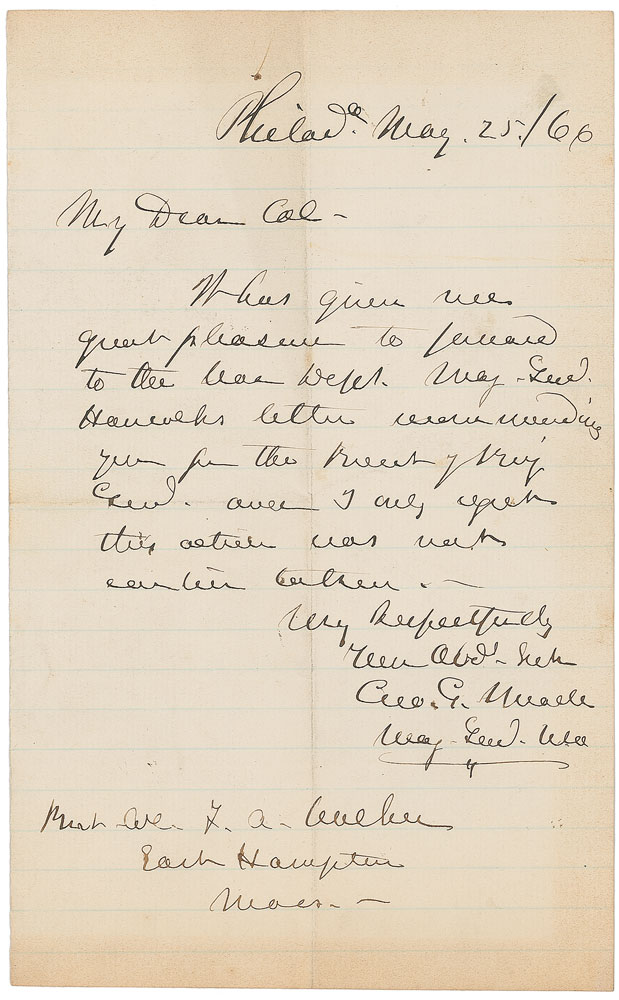 Philad.a May. 25./66
My Dear Col -
It has given me
great pleasure to forward
to the War Dept. Maj-Genl.
Hancocks letter recommending
you for the Brevet of Brig
Genl. and I only regret
this action was not
earlier taken. -
Very Respectfully
Your Obdt. Svt
Geo. G. Meade
Maj-Genl. USA
Brvt- Col. F. A. Walker
East Hampton
Mass. -